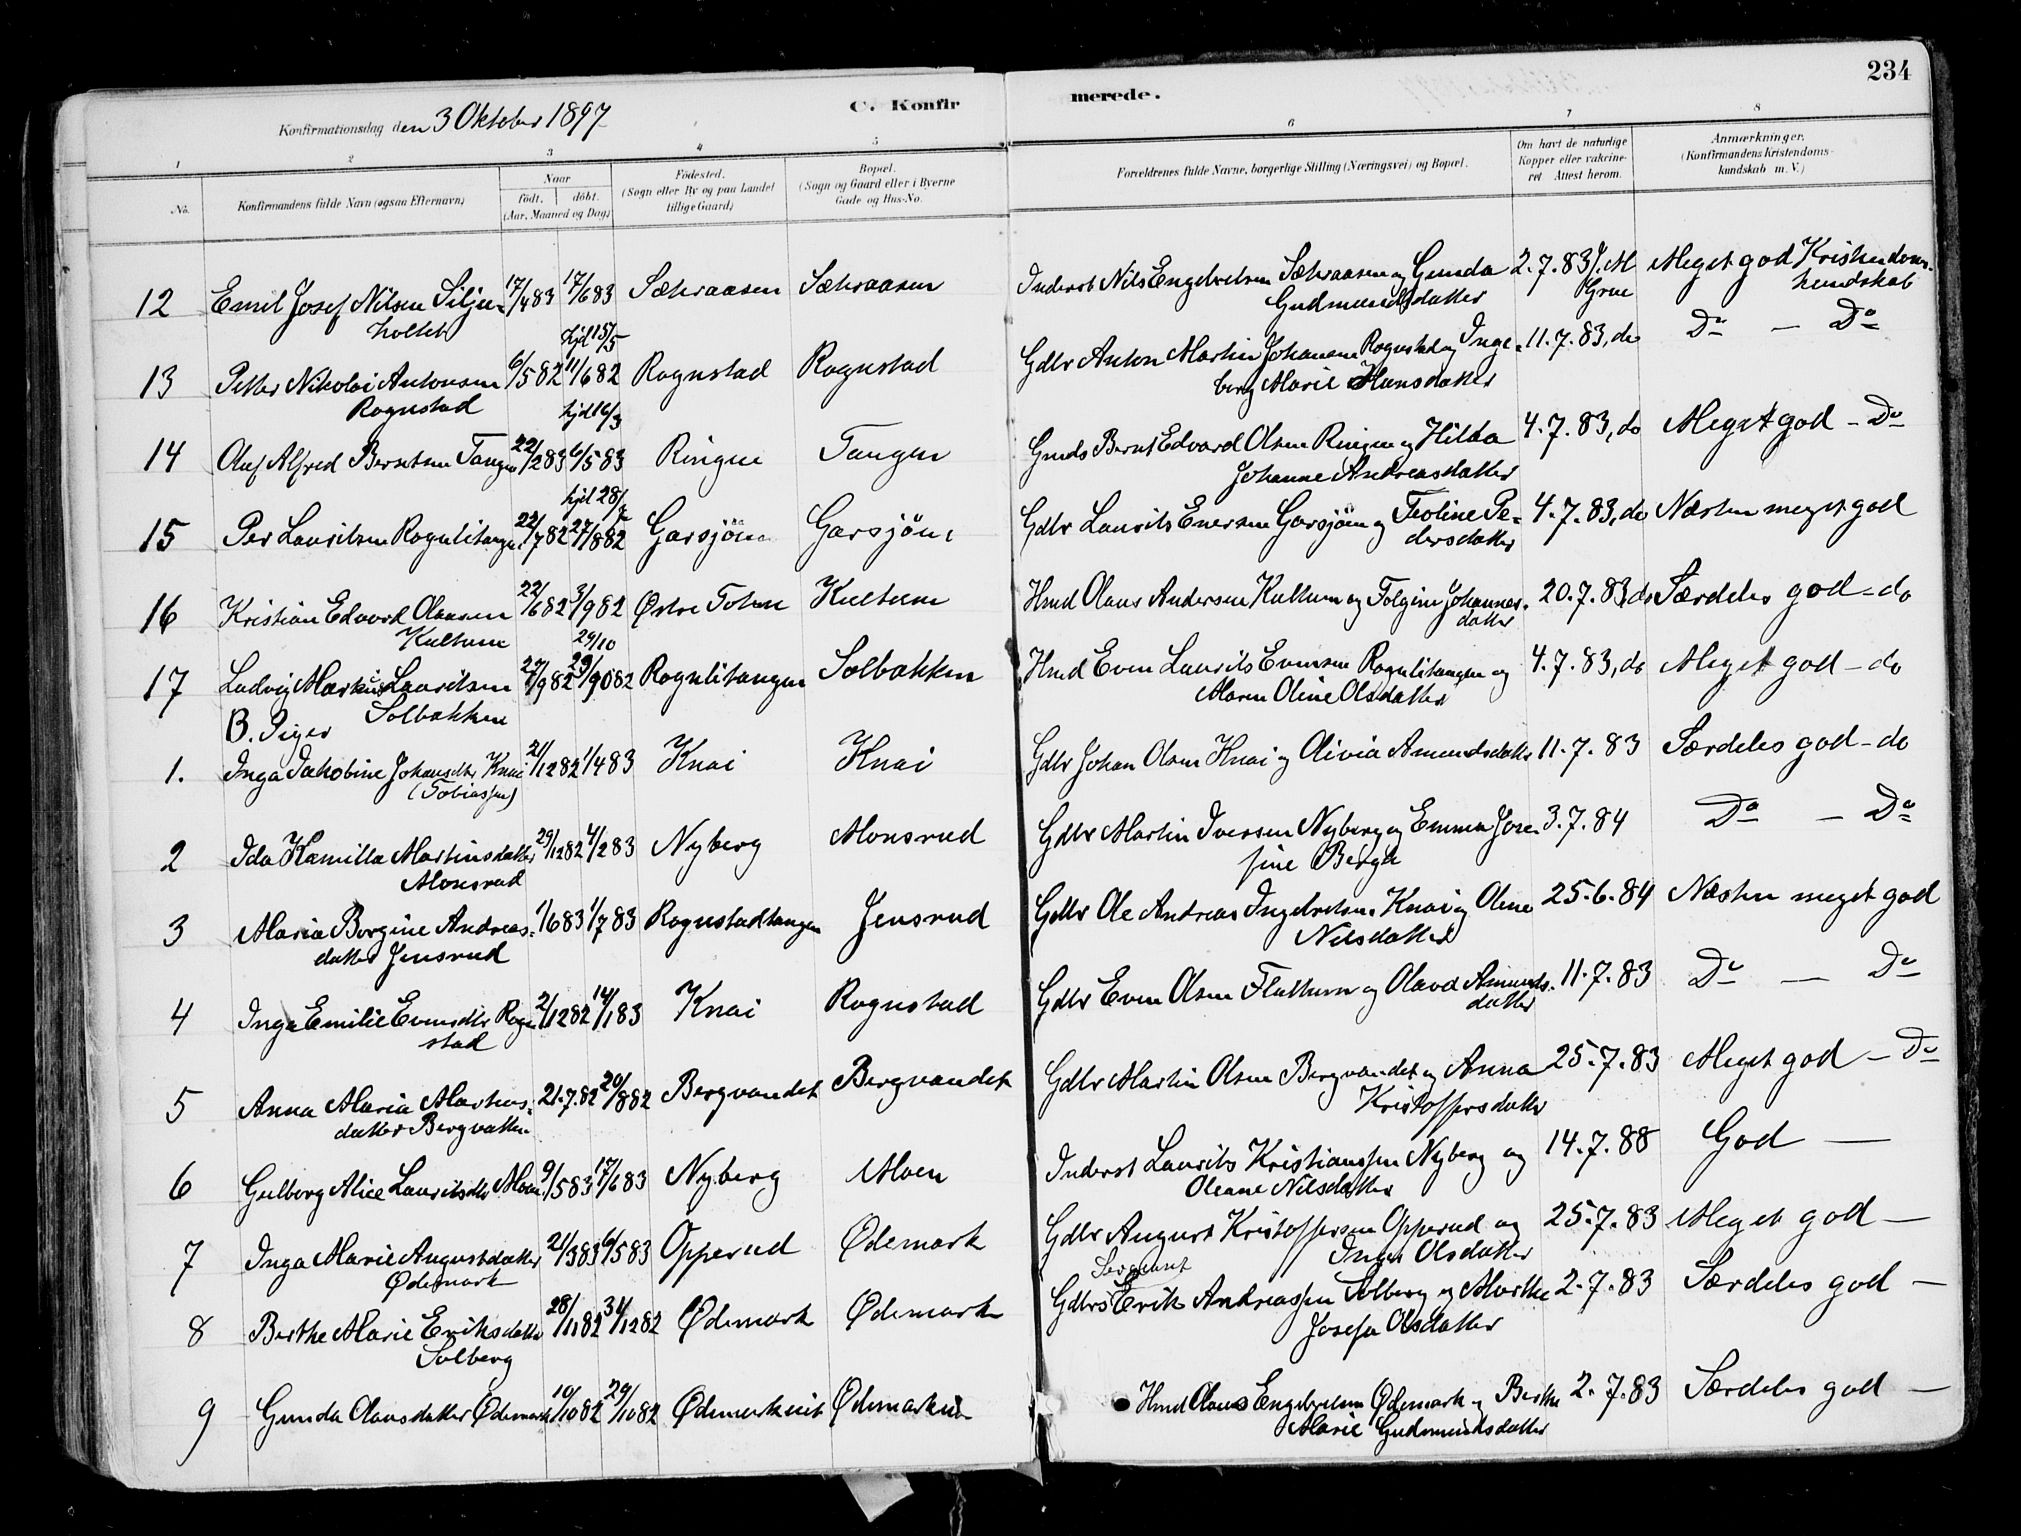 234
C. Konfir merede.
Konfirmationsdag den 3 Oktober 1897
1 2 3 4 5 6 7 8
No. Konfirmandens fulde Navn (ogsaa Efternavn) Naar født. døbt. (Aar, Maaned og Dag) Fødested. (Sogn eller By og paa Landet tillige Gaard) Bopæl. (Sogn og Gaard eller i Byerne Gade og Hus-No. Forældrenes fulde Navne, borgerlige Stilling (Næringsvei) og Bopæl. Om havt de naturlige Kopper eller vakcineret Attest herom. Anmærkninger. (Konfirmandens Kristendomskundskab m. V.)
12 Emil Josef Nilsen Silju- 17/4 83 17/6 83 Sæhraasen Sæhraasen Inderst Nils Engebretsen Sæhraasen og Gunda 2.7.83 J. M Meget god Kristendoms-
holtet Gudmundsdatter Grue kundskab
hjd 15/5
13 Petter Nikolai Antonsen 6/5 82 11/6 82 Rognstad Rognstad Gdbr Anton Martin Johansen Rognstad og Inge- 11.7.83, do Do — Do
Rognstad berg Marie Hansdatter
hjd 16/3
14 Oluf Alfred Berntsen Tangen 22/2 83 6/5 83 Ringen Tangen Gmds Bernt Edvard Olsen Ringen og Hilda 4.7.83, do Meget god - Do
Johanne Andreasdatter
hjd 28/7
15 Per Lauritsen Rognlitangen 22/7 82 27/8 82 Garsjøen Garsjøen Gdbr Laurits Evensen Garsjøen og Teoline Pe- 4.7.83, do Næsten meget god
dersdatter
16 Kristian Edvard Olausen 22/6 82 3/9 82 Østre Toten Kultum Hmd Olaus Andersen Kultum og Tolgine Johannes- 20.7.83, do Særdeles god - do
Kultum datter
29/10
17 Ludvig Markus Lauritsen 27/9 82 Rognlitangen Solbakken Hmd Even Laurits Evensen Rognlitangen og 4.7.83, do Meget god - do
Solbakken Maren Oline Olsdatter
B. Piger
1. Inga Jakobine Johansdtr Knai 2/12 82 1/4 83 Knai Knai Gdbr Johan Olsen Knai og Olivia Amundsdatter 11.7.83 Særdeles god - do
(Tobiassen)
2 Ida Kamilla Martinsdatter 29/12 82 4/2 83 Nyberg Monsrud Gdbr Martin Iversen Nyberg og Emma Jose- 3.7.84 Do — Do
Monsrud fine Berga
3 Maria Bergine Andreas- 1/6 83 1/7 83 Rognstadtangen Jensrud Gdbr Ole Andreas Ingebretsen Knai og Oline 25.6.84 Næsten meget god
datter Jensrud Nilsdatter
4 Inga Emilie Evensdtr Rogn- 2/12 82 14/1 83 Knai Rognstad Gdbr Even Olsen Flattum og Olava Amunds- 11.7.83 Do — Do
stad datter
5 Anna Maria Martins- 21.7.82 20/8 82 Bergvandet Bergvandet Gdbr Martin Olsen Bergvandet og Anna 25.7.83 Meget god - Do
datter Bergvatten Kristoffersdatter
6 Gulborg Alice Lauritsdtr Moen 9/5 83 17/6 83 Nyberg Moen Inderst Laurits Kristianssen Nyberg og 14.7.88 God —
Oleane Nilsdatter
7 Inga Marie Augustdatter 21/3 83 6/5 83 Opperud Ødemark Gdbr August Kristoffersen Opperud og 25.7.83 Meget god —
Ødemark Inger Olsdatter
Sergeant
8 Berthe Marie Eriksdatter 28/11 82 31/12 82 Ødemark Ødemark Gdbrs Erik Andreassen Solberg og Marthe 2.7.83 Særdeles god —
Solberg Josefa Olsdatter
9 Gunda Olausdatter Ødemark 10/10 82 29/10 82 Ødemarkeiet Ødemarkeie Hmd Olaus Engebretsen Ødemark og Berthe 2.7.83 Særdeles god —
Marie Gudmundsdatter